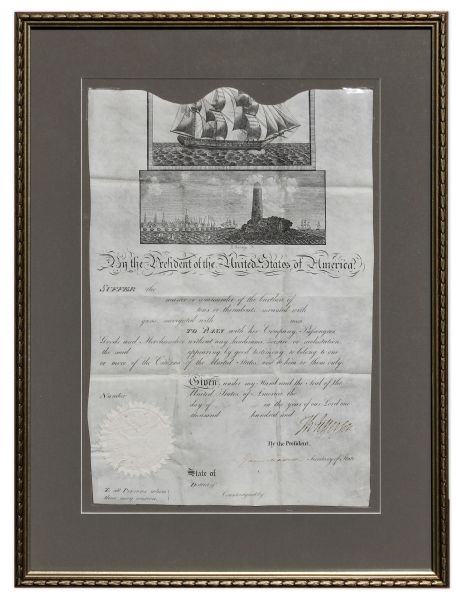 By the President of the United States of America,
SUFFER the
master or commander of the burthen of
tons or thereabouts, mounted with
guns, navigated with men
TO PASS with her Company, Passengers
Goods and Merchandize without any hindrance, seizure or molestation,
the said appearing by good testimony to belong to one
or more of the Citizens of the United States, and to him or them only.
Given under my Hand and the Seal of the
United States of America the
Number day of in the year of our Lord one
thousand hundred and
Th: Jefferson
By the President,
James Madison Secretary of State
State of
District of
Countersigned by
To all Persons whom
these may concern.